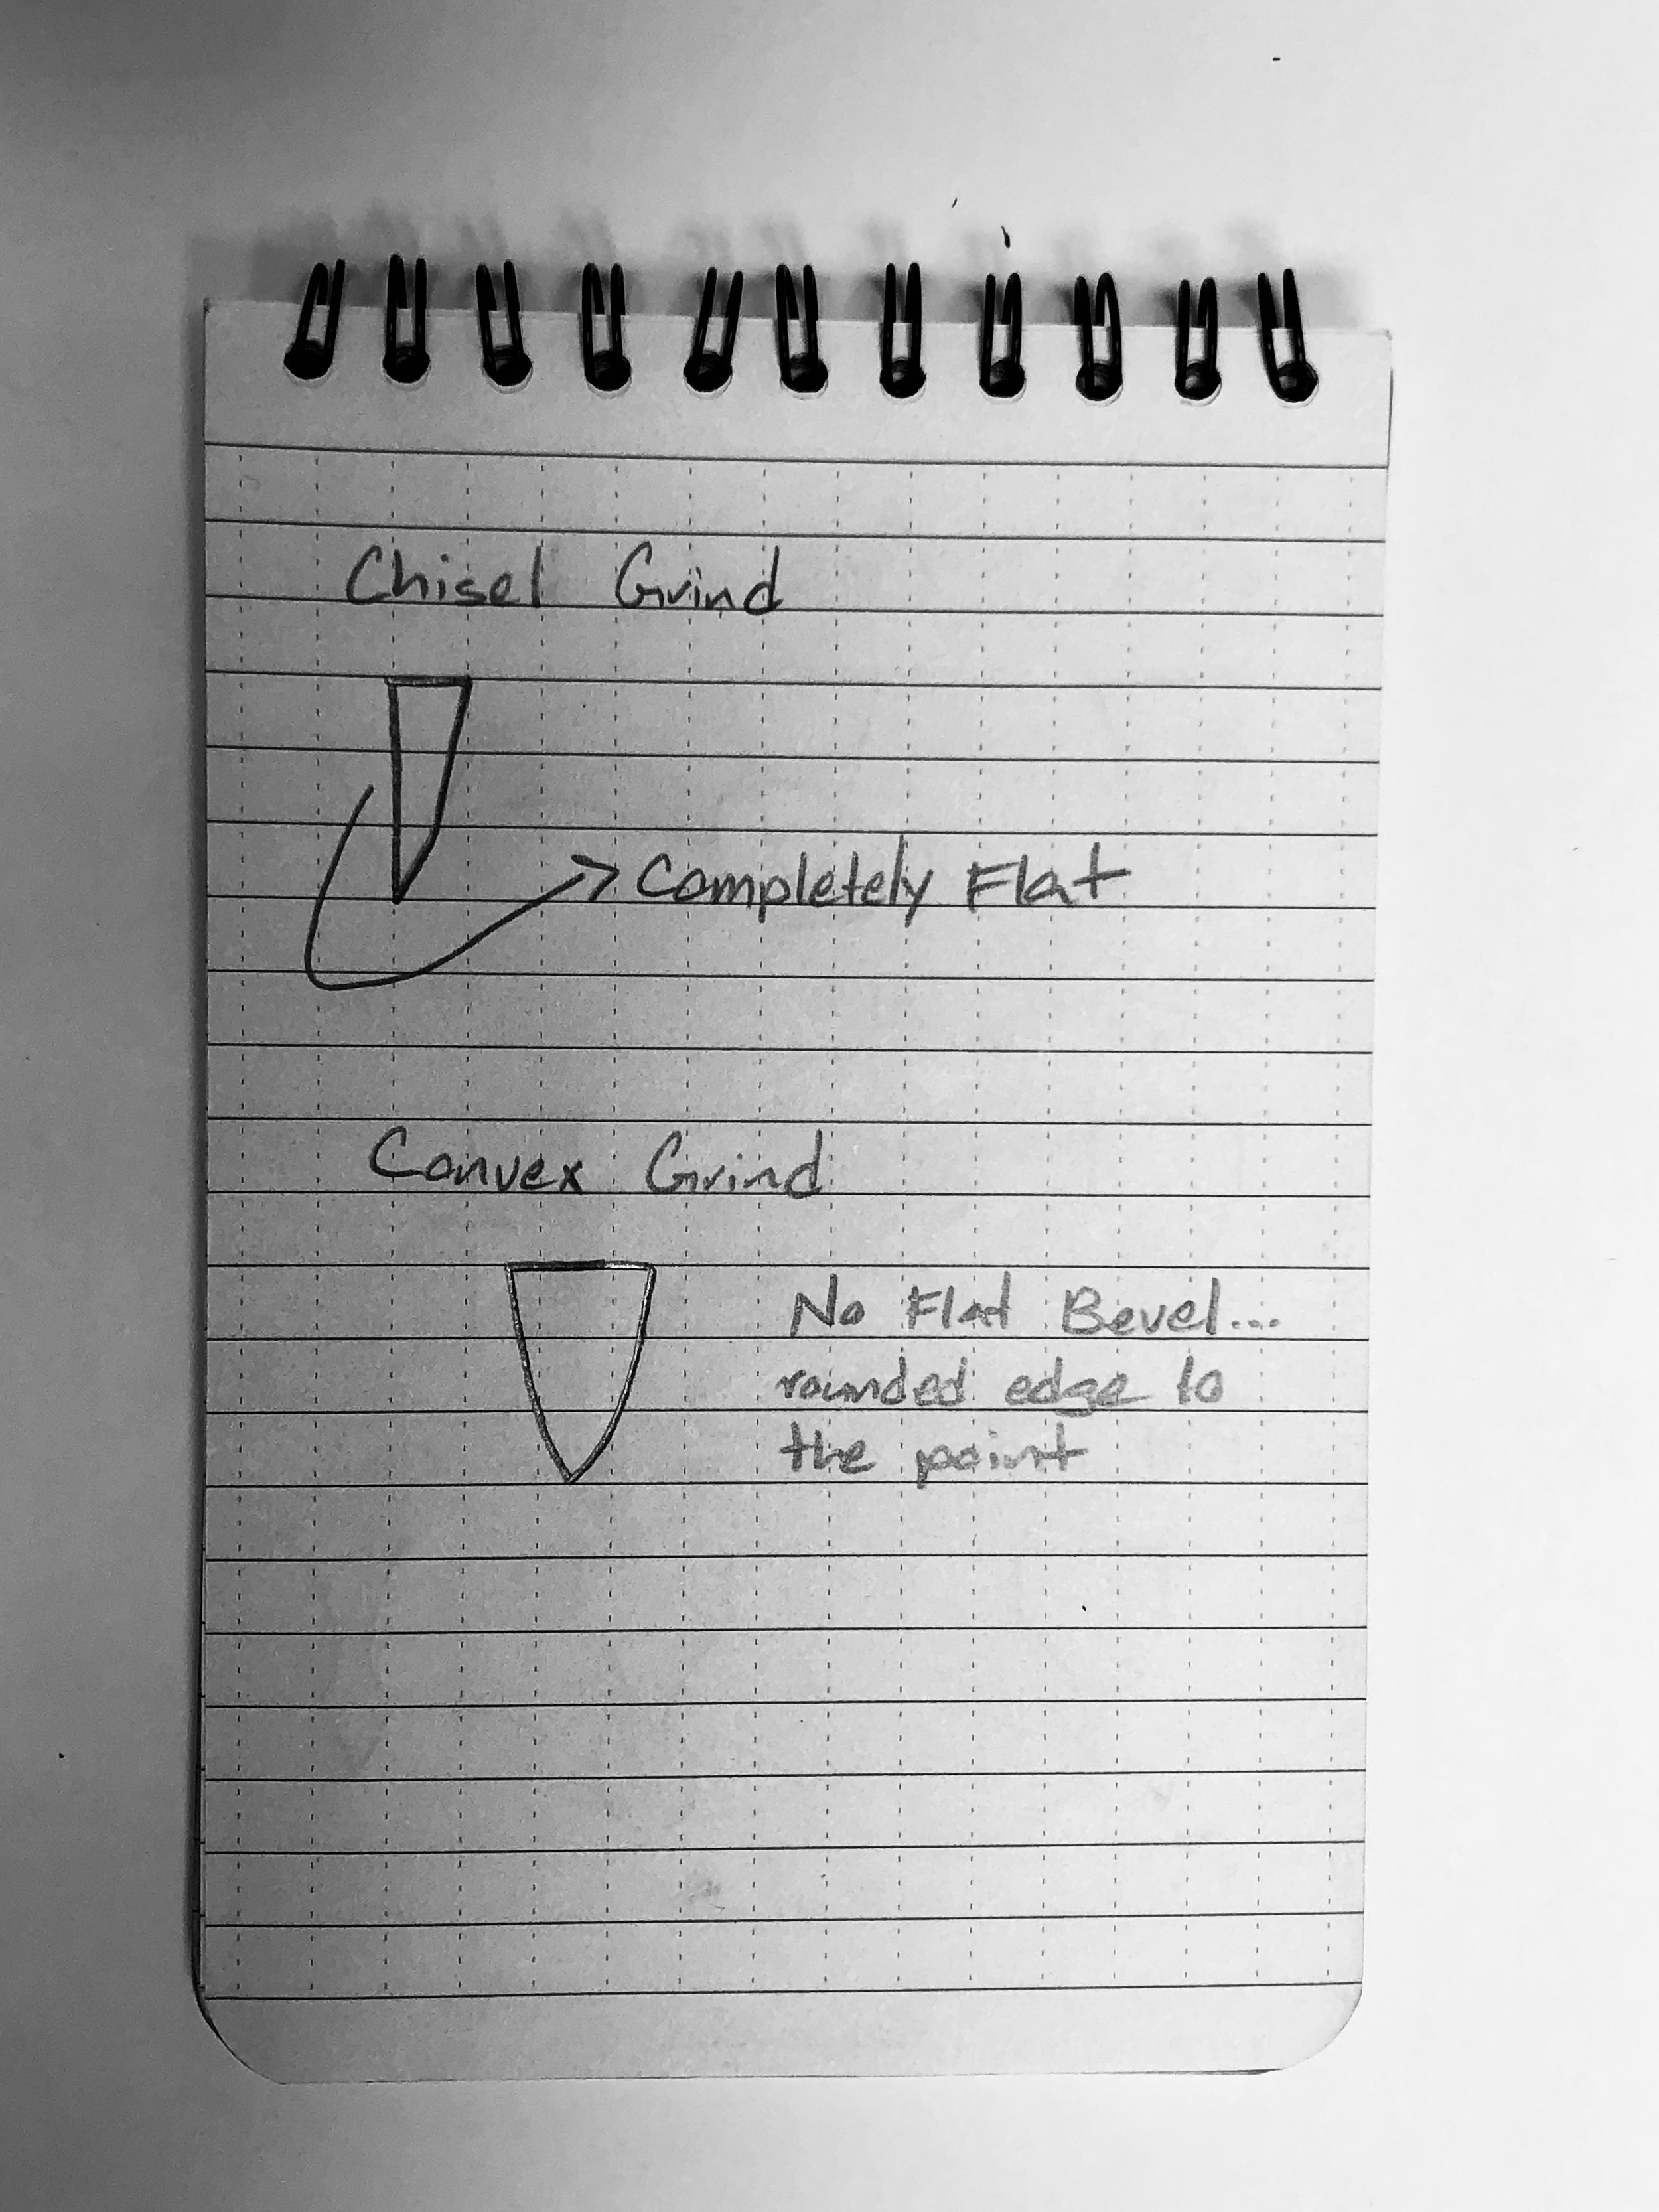 Chisel Grind
Completely Flat
Convex Grind
No Flat Bevel...
rounded edge to
the point